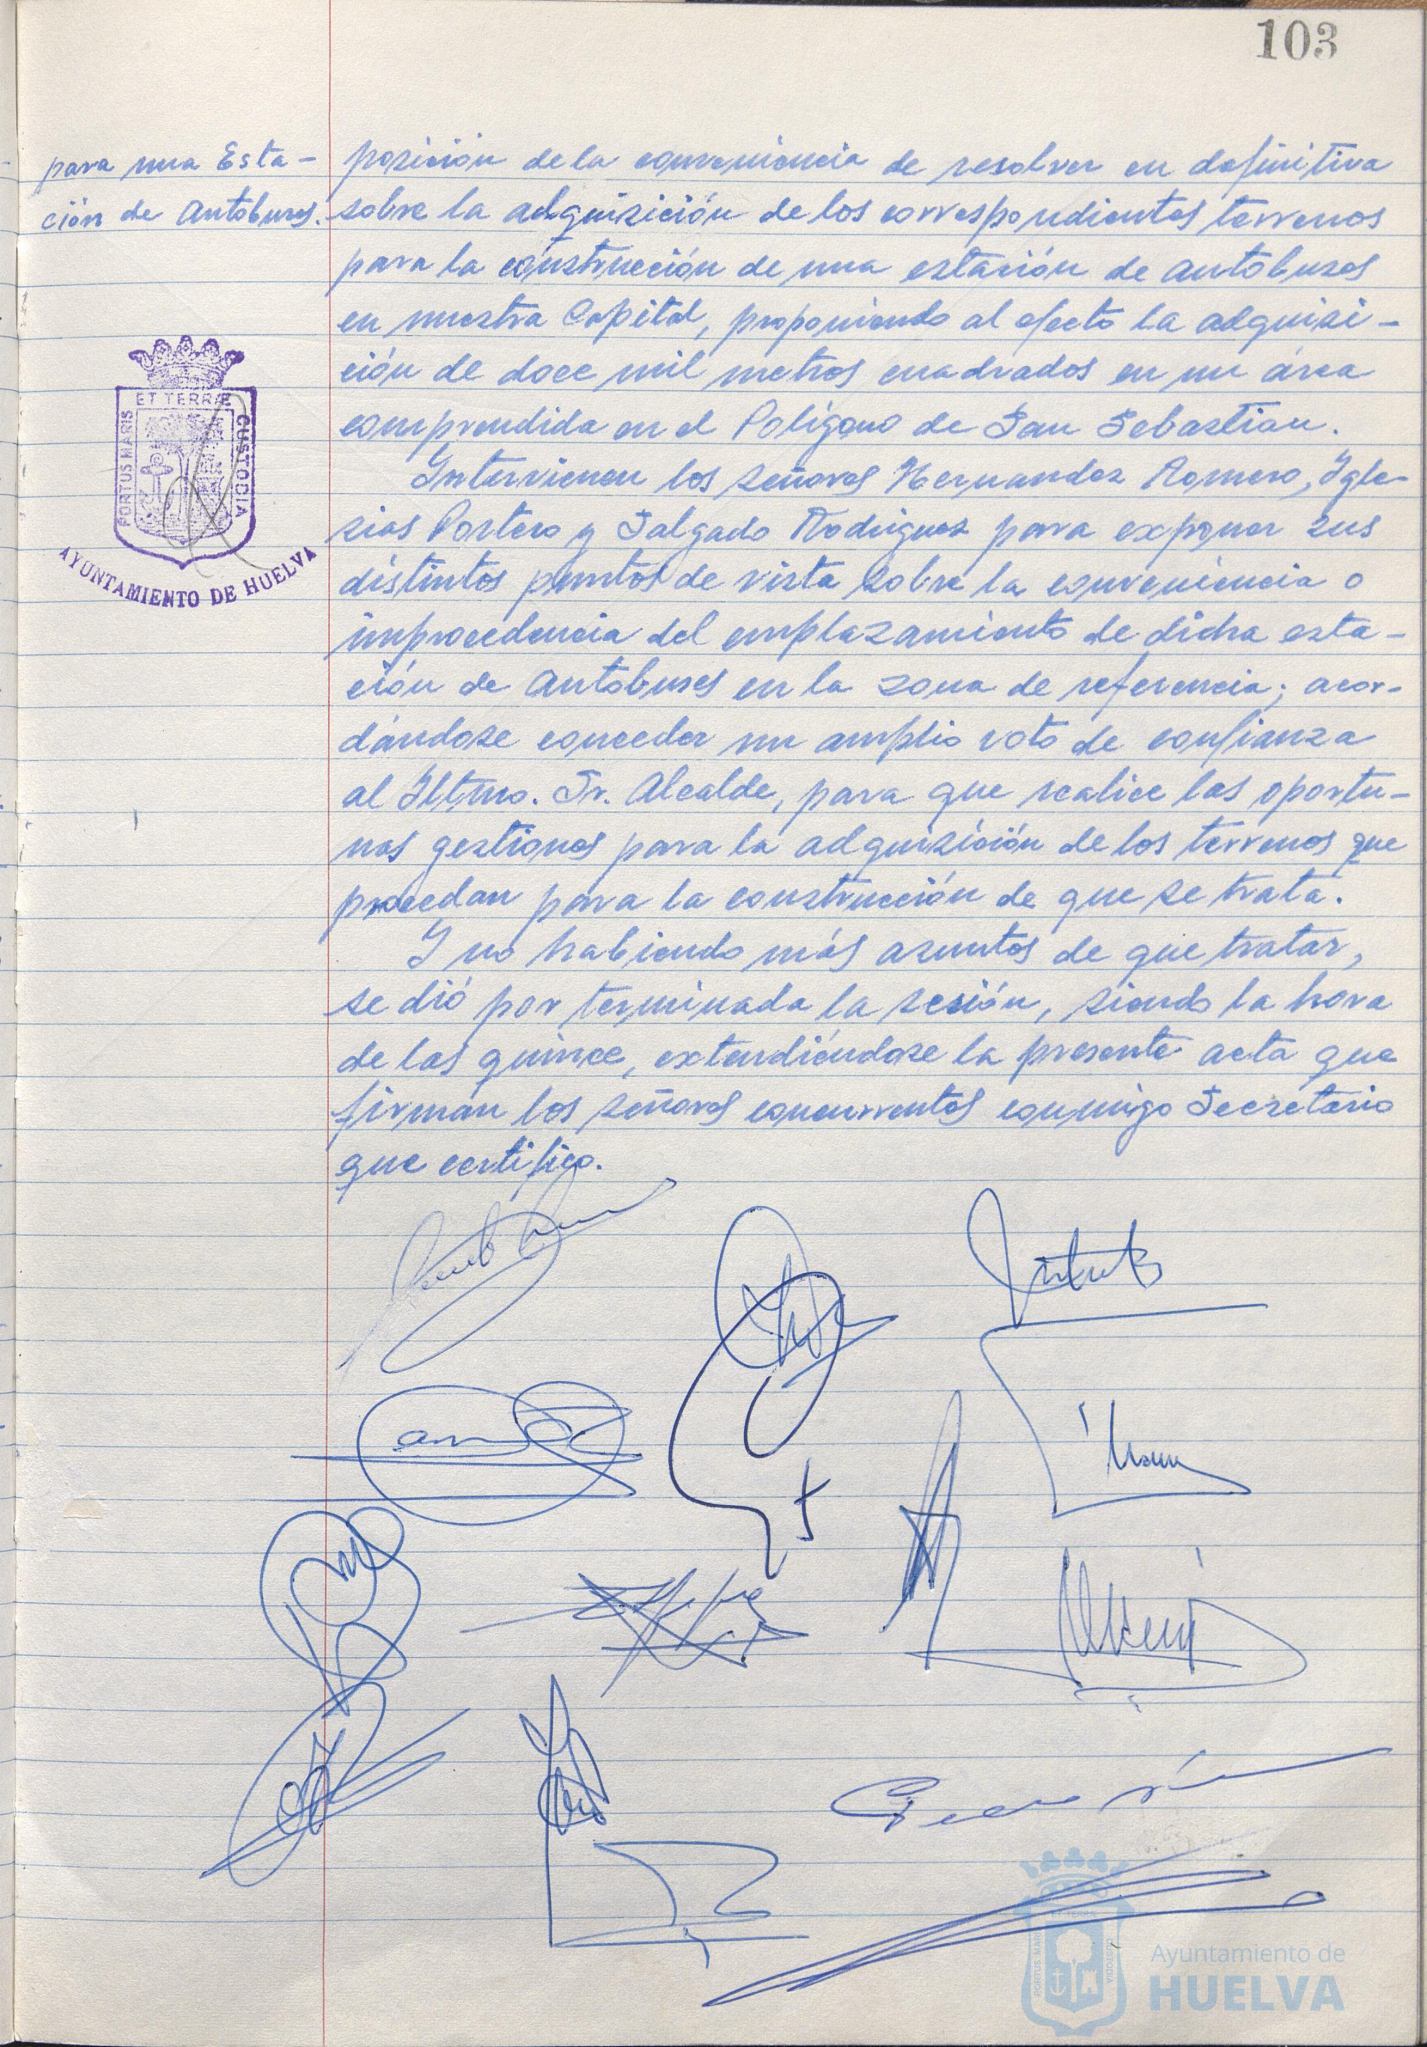 103
para una Esta-
ción de Autobuses.
posición de la conveniencia de resolver en definitiva
sobre la adquisición de los correspondientes terrenos
para la construcción de una estación de autobuses
en nuestra Capital, proponiendo al efecto la adquisi-
ción de doce mil metros cuadrados en un área
comprendida en el Polígono de San Sebastian.
Intervienen los señores Hernandez Romero, Igle-
sias Portero y Salgado Rodriguez para exponer sus
distintos puntos de vista sobre la conveniencia o
improcedencia del emplazamiento de dicha esta-
ción de Autobuses en la zona de referencia; acor-
dándose conceder un amplio voto de confianza
al Iltmo. Sr. Alcalde, para que realice las oportu-
nas gestiones para la adquisición de los terrenos que
procedan para la construcción de que se trata.
Y no habiendo más asuntos de que tratar,
se dió por terminada la sesión, siendo la hora
de las quince, extendiéndose la presente acta que
firman los señores concurrentes conmigo Secretario
que certifico.
PORTUS MARIS
ET TERRÆ
CUSTODIA
AYUNTAMIENTO DE HUELVA
Ayuntamiento de
HUELVA